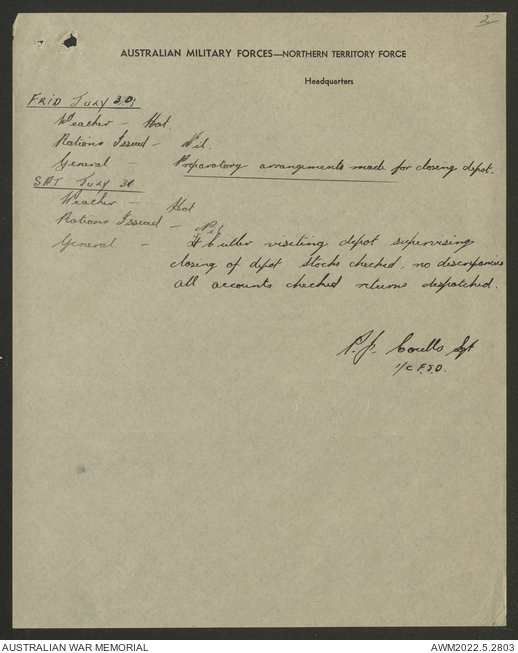 2
AUSTRALIAN MILITARY FORCES—NORTHERN TERRITORY FORCE
Headquarters
FRID JULY 30;
Weather - Hot.
Rations Issued - Nil.
General - Preparatory arrangements made for closing depot.
SAT JULY 31
Weather - Hot
Rations Issued - Nil
General - Lt Cutler visiting depot supervising
closing of depot Stocks checked, no discrepancies
all accounts checked returns despatched.
P.J. Sgt
I/C F.S.D.
AUSTRALIAN WAR MEMORIAL
AWM2022.5.2803